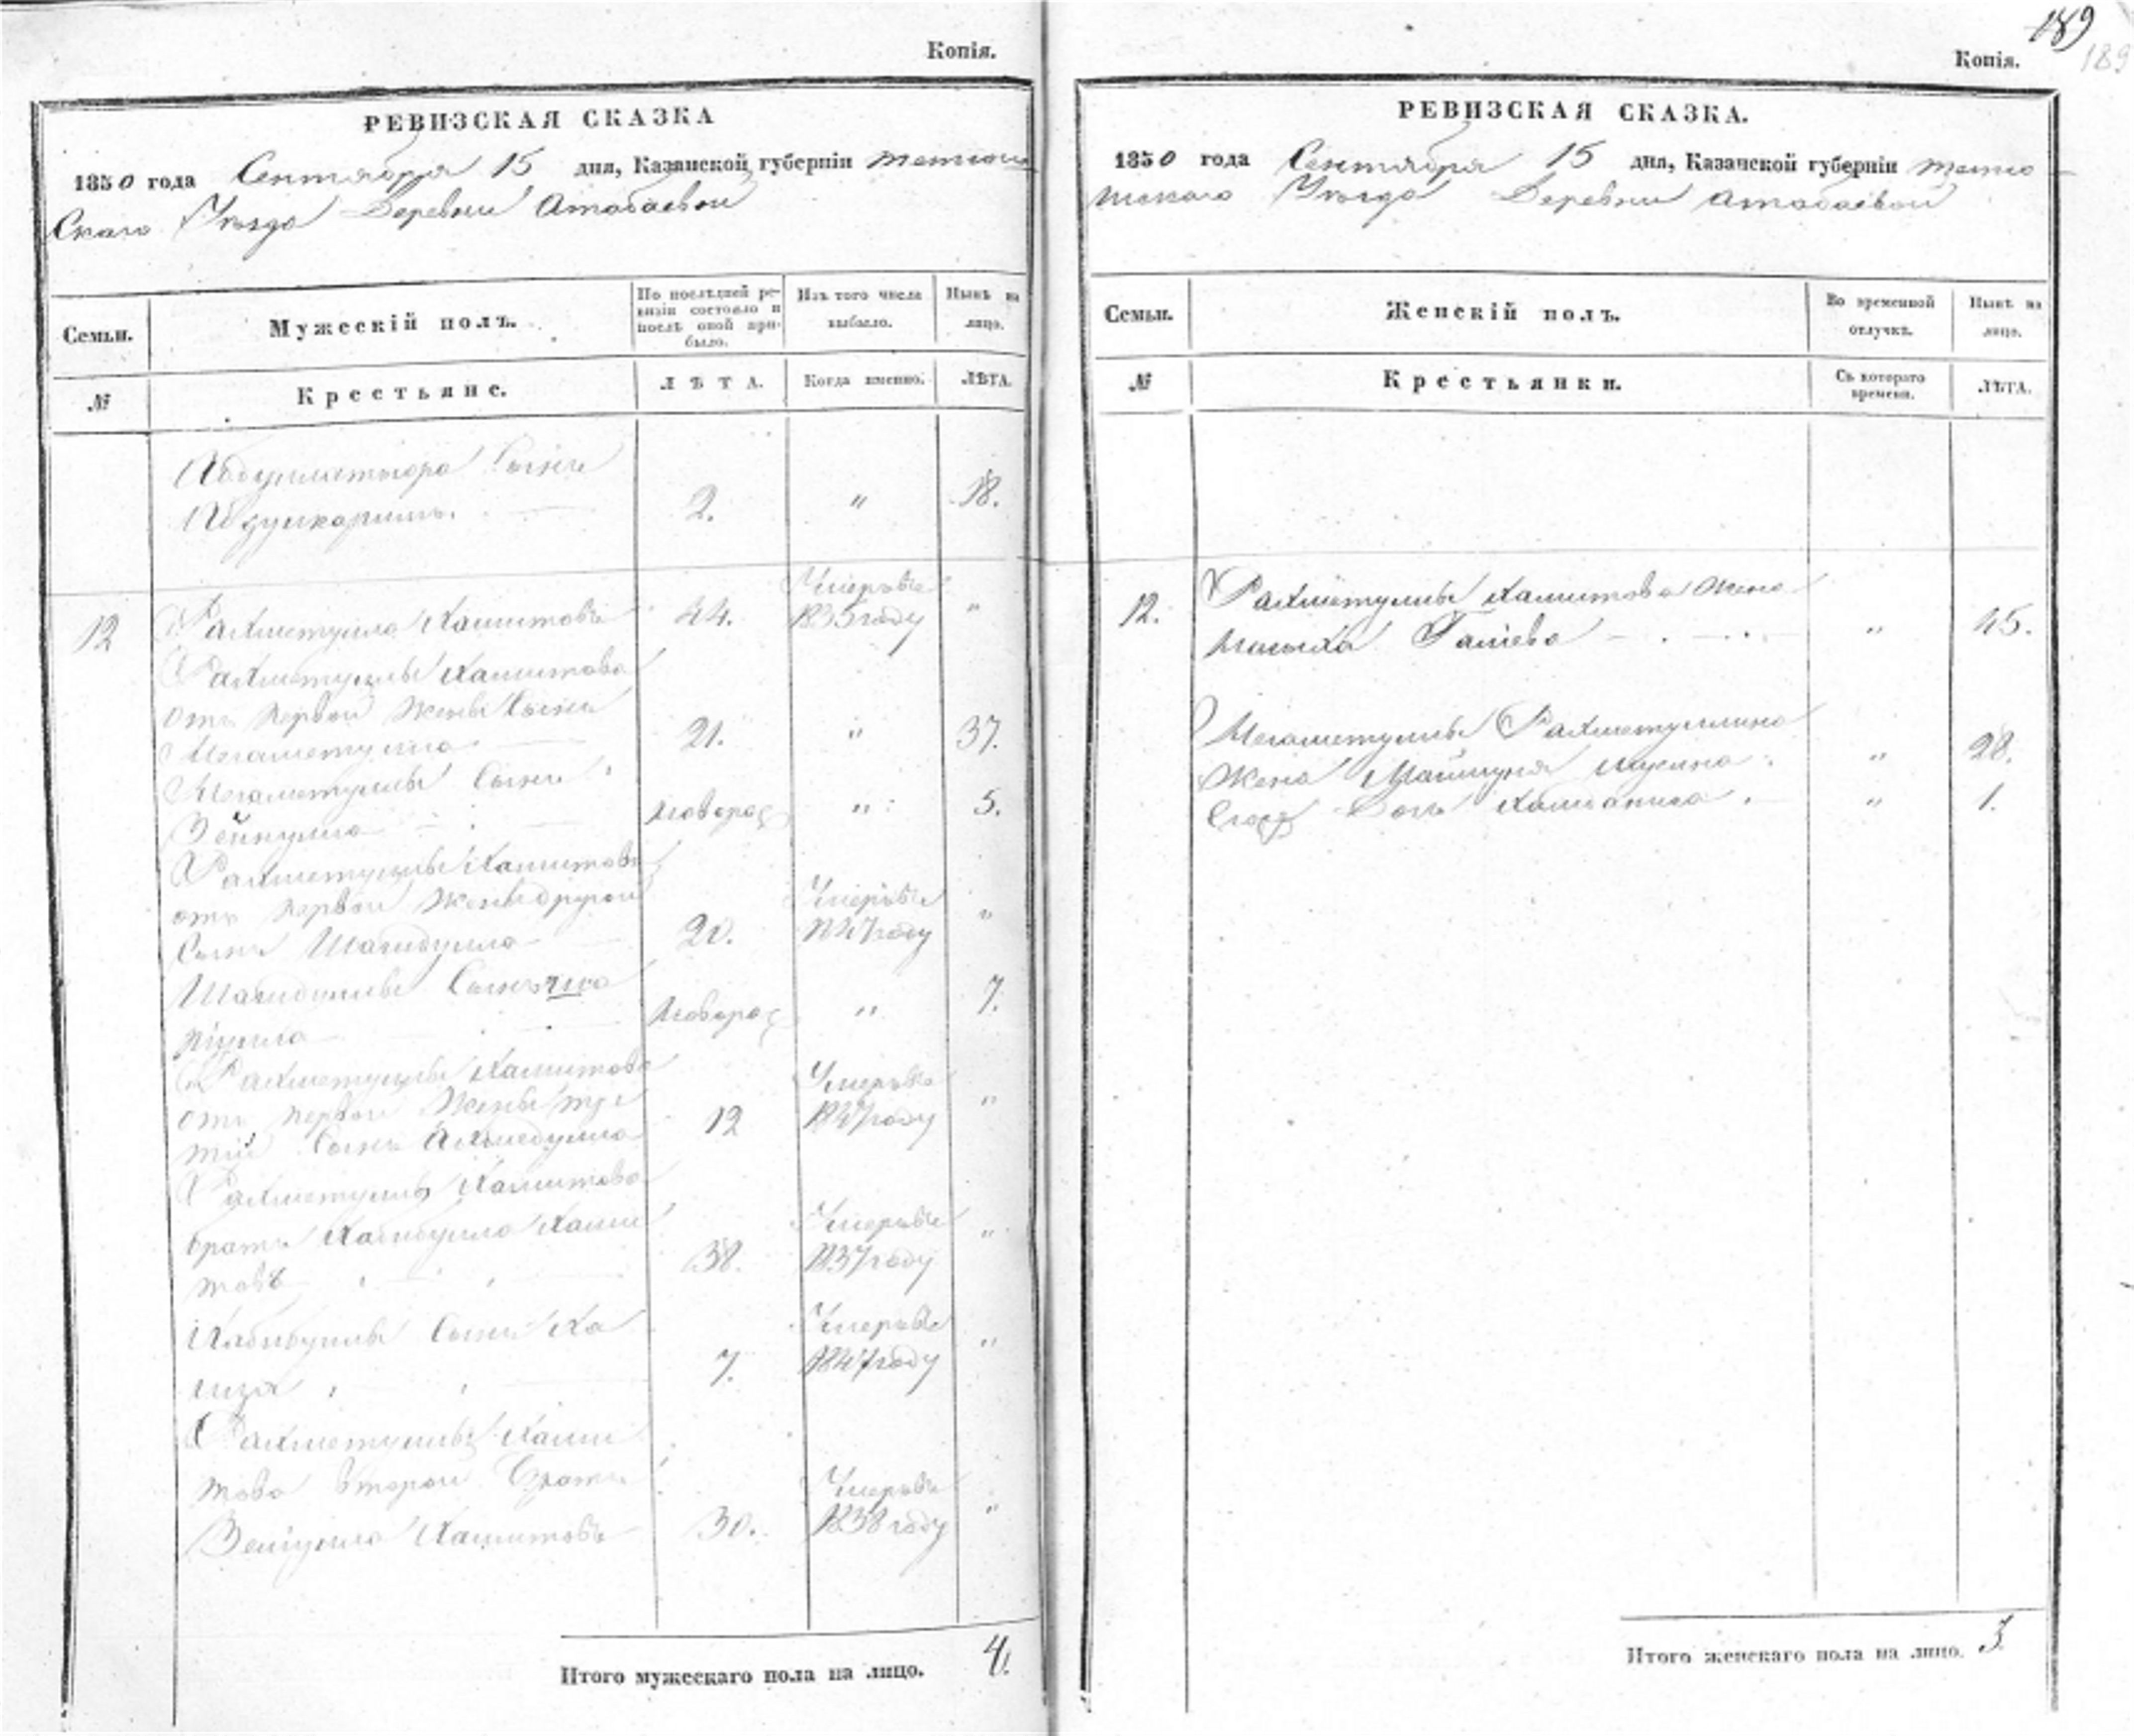 189
189
Копія.
РЕВИЗСКАЯ СКАЗКА
1850 года Сентября 15 дня, Казанской губерніи тетюш
скаго Уѣзда Деревни Атабаевой
Семьи.
Мужескій полъ.
По послѣдней ре-
визіи состояло и
послѣ оной при-
было.
Изъ того числа
выбыло.
Нынѣ на
лицо.
№
Крестьяне.
ЛѢТА.
Когда именно.
ЛѢТА.
Сынъ
2. " 18.
12 Рахметулла Хамитовъ 44. Умеръ въ 1835 году "
Рахметуллы Хамитова
отъ первой жены Сынъ
21. " 37.
Сынъ
Зейнулла новорож " 5.
Рахметуллы Хамитова
отъ первой жены другой
Сынъ Шагидулла 20. Умеръ въ 1847 году "
Шагидуллы Сынъ
новорож " 7.
Рахметуллы Хамитова
отъ первой Жены тре
тій Сынъ Ахмедулла 12 Умеръ въ 1847 году "
Рахметуллы Хамитова
братъ Хабибулла Хами
товъ 38. Умеръ въ 1837 году "
Хабибуллы Сынъ Ха
мза 7. Умеръ въ 1847 году "
Рахметуллы Хами
това второй братъ
Хамитовъ 30. Умеръ въ 1838 году "
Итого мужескаго пола на лицо. 4.
Копія.
РЕВИЗСКАЯ СКАЗКА.
1850 года Сентября 15 дня, Казанской губерніи тетю
шскаго Уѣзда Деревни Атабаевой
Семьи.
Женскій полъ.
Во временной
отлучкѣ.
Нынѣ на
лицо.
№
Крестьянки.
Съ котораго
времени.
ЛѢТА.
12. Рахметуллы Хамитова жена
Галіева " 45.
Рахметуллина
жена " 28.
Дочь " 1.
Итого женскаго пола на лицо. 3